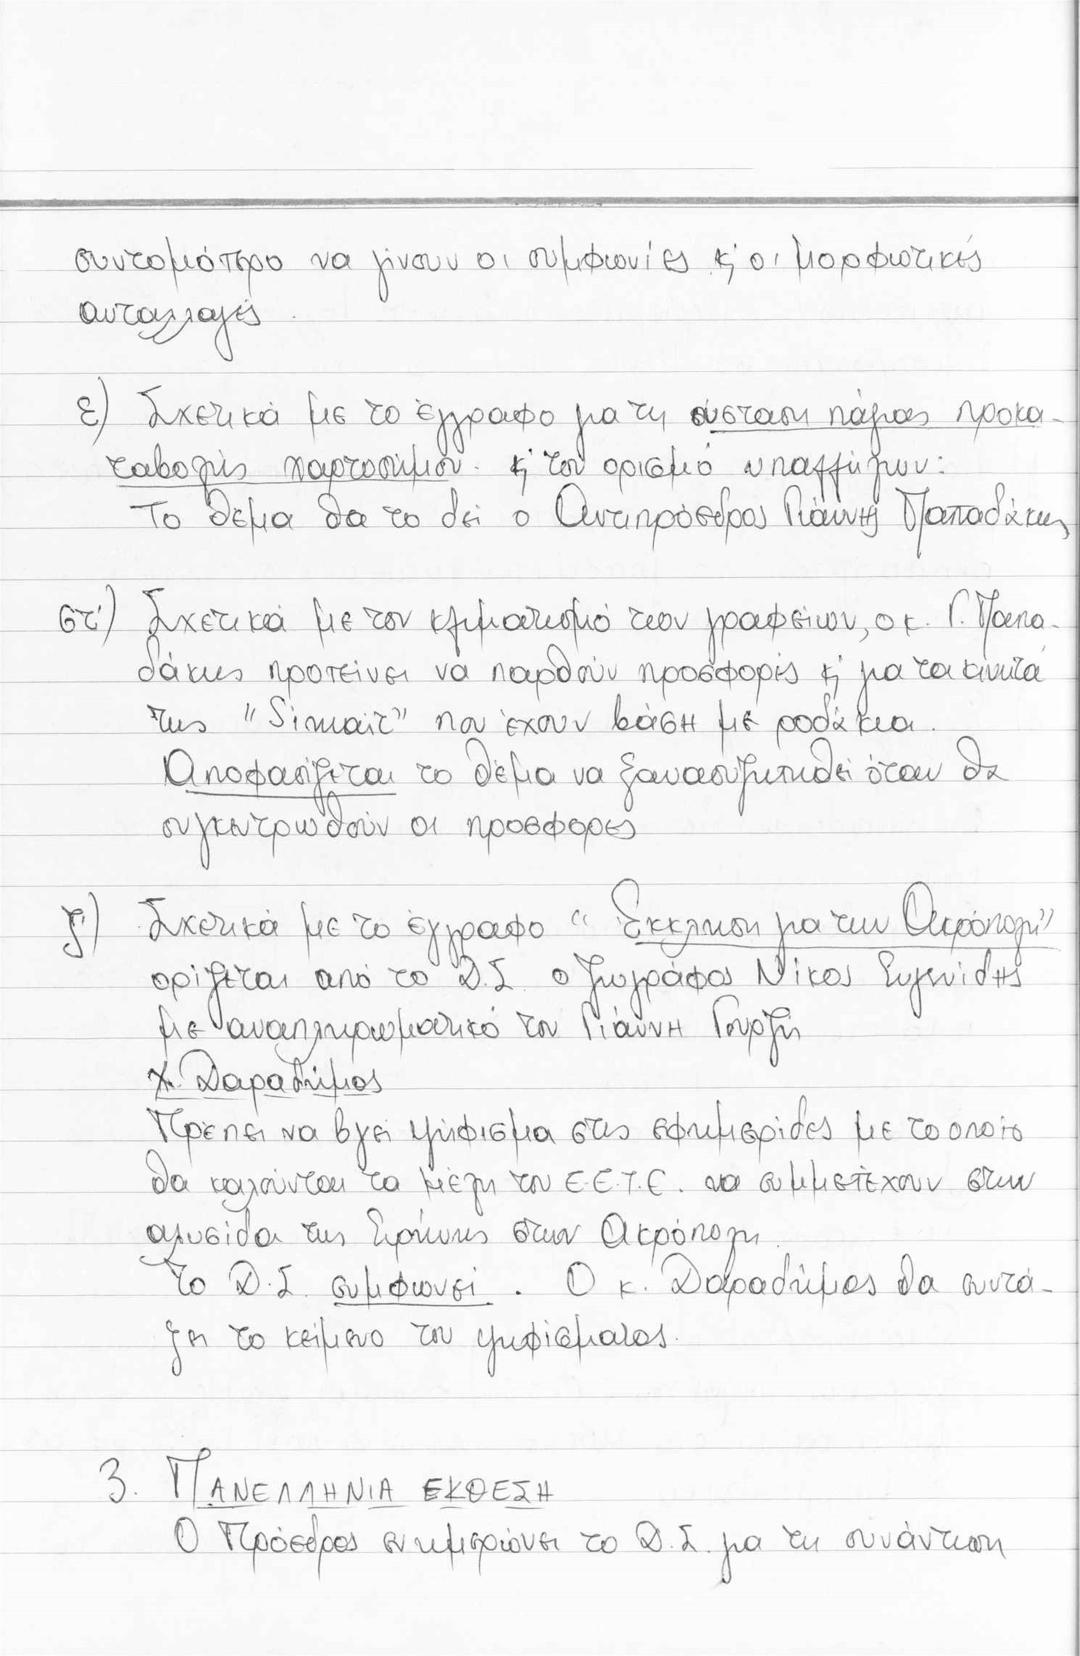 συντομότερο να γίνουν οι συμφωνίες κ' οι μορφωτικές
ανταλλαγές.
ε) Σχετικά με το έγγραφο για τη σύσταση πάγιας προκα-
ταβολής χαρτοσήμου κ' τον ορισμό υπαλλήλων:
Το θέμα θα το δει ο Αντιπρόεδρος Γιάννης Παπαδάκης
στ') Σχετικά με τον κλιματισμό των γραφείων, ο κ. Γ. Παπα-
δάκης προτείνει να παρθούν προσφορές κ' για τα κινητά
της " που έχουν βάση με ροδάκια.
Αποφασίζεται το θέμα να ξανασυζητηθεί όταν θα
συγκεντρωθούν οι προσφορές
ζ') Σχετικά με το έγγραφο "Έκκληση για την Ακρόπολη"
ορίζεται από το Δ.Σ. ο ζωγράφος Νίκος Ευγενίδης
με αναπληρωματικό τον Γιάννη Γουρζή
Χ. Δαραδήμος
Πρέπει να βγει ψήφισμα στις εφημερίδες με το οποίο
θα καλούνται τα μέλη του Ε.Ε.Τ.Ε. να συμμετέχουν στην
αλυσίδα της Ειρήνης στην Ακρόπολη.
Το Δ.Σ. συμφωνεί. Ο κ. Δαραδήμος θα συντά-
ξει το κείμενο του ψηφίσματος.
3. ΠΑΝΕΛΛΗΝΙΑ ΕΚΘΕΣΗ
Ο Πρόεδρος ενημερώνει το Δ.Σ. για τη συνάντηση